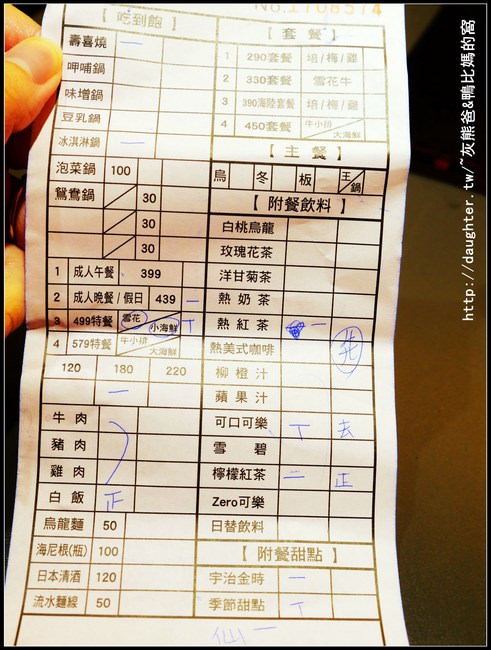 No.1708574
【吃到飽】
壽喜燒 一
呷哺鍋
味增鍋
豆乳鍋
冰淇淋鍋 一
泡菜鍋 100
鴛鴦鍋 30
30
30
1 成人午餐 399
2 成人晚餐/假日 439 一
3 499特餐 雪花 小海鮮 T
4 579特餐 牛小排 大海鮮
120 180 220
一
牛肉
豬肉
雞肉
白飯 正
烏龍麵 50
海尼根(瓶) 100
日本清酒 120
流水麵線 50
【套餐】
1 290套餐 培/梅/雞
2 330套餐 雪花牛
3 390海陸套餐 培/梅/雞
4 450套餐 牛小排 大海鮮
【主餐】
烏 冬 板 王/鍋
【附餐飲料】
白桃烏龍
玫瑰花茶
洋甘菊茶
熱奶茶
熱紅茶 一
先
熱美式咖啡
柳橙汁
蘋果汁
可口可樂 T 去
雪碧
檸檬紅茶 二 正
Zero可樂
日替飲料
【附餐甜點】
宇治金時 一
季節甜點 T
仙 一
http://daughter.tw/~灰熊爸&鴨比媽的窩